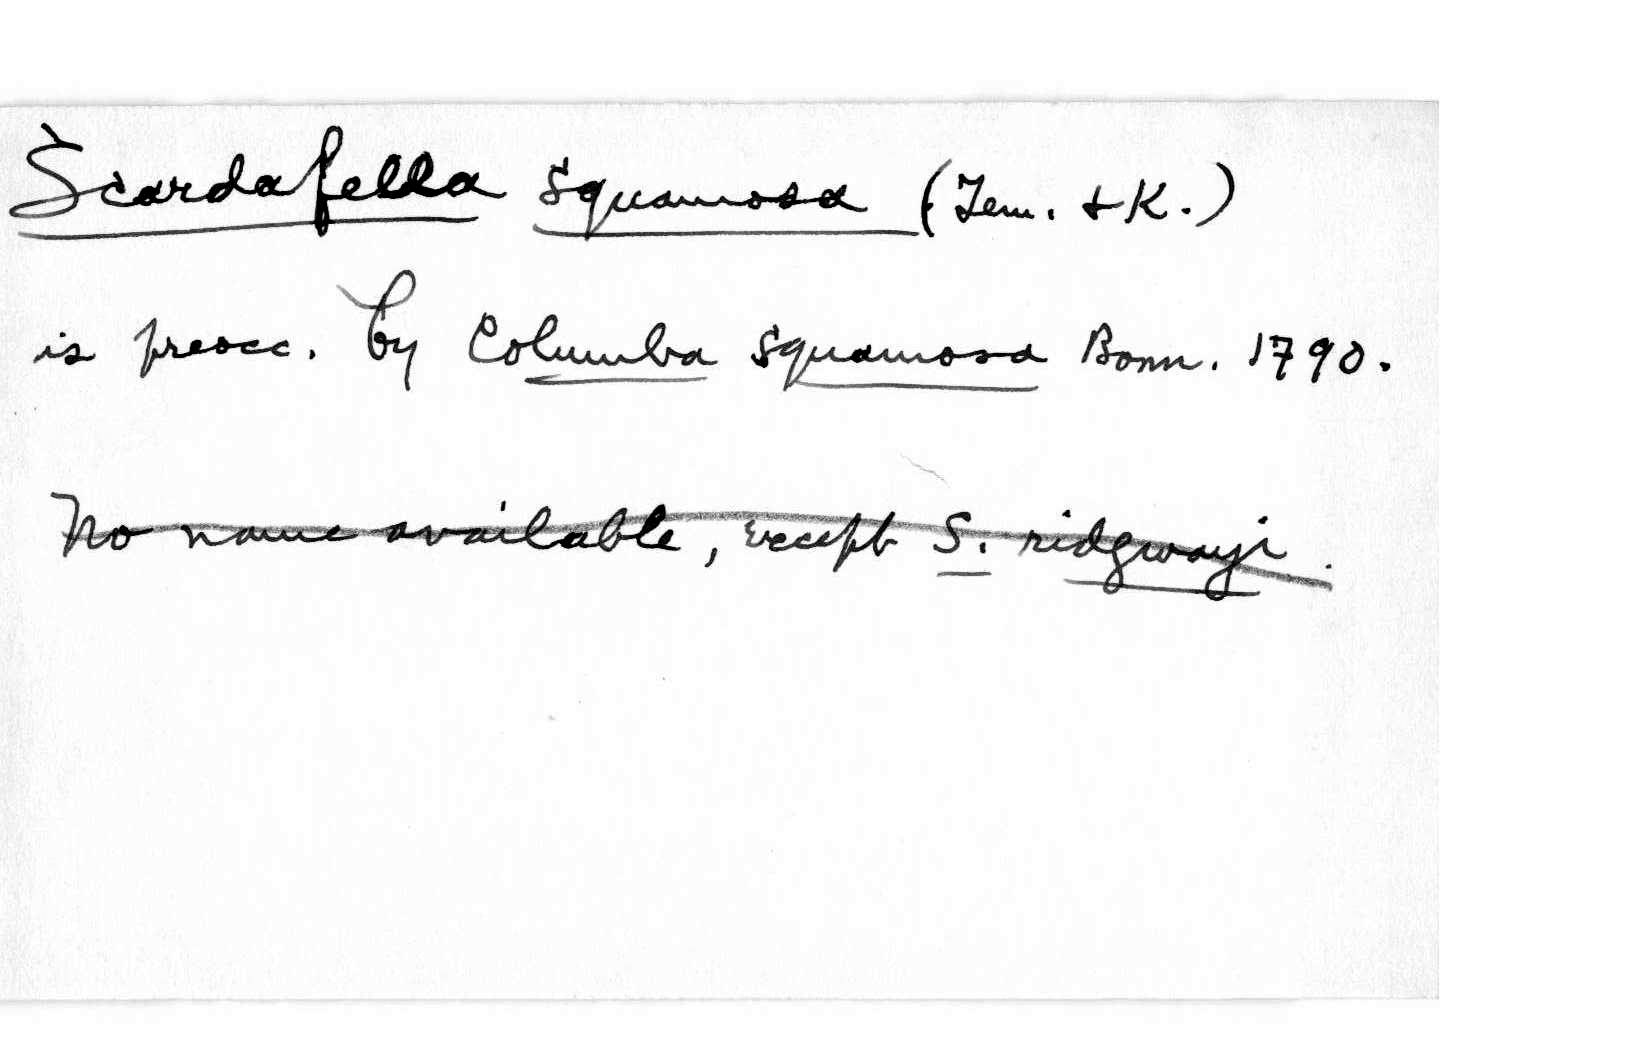 Scardafella squamosa (Tem. + K.)
is preocc. by Columba squamosa Bonn. 1790.
No name available, except S. ridgwayi.